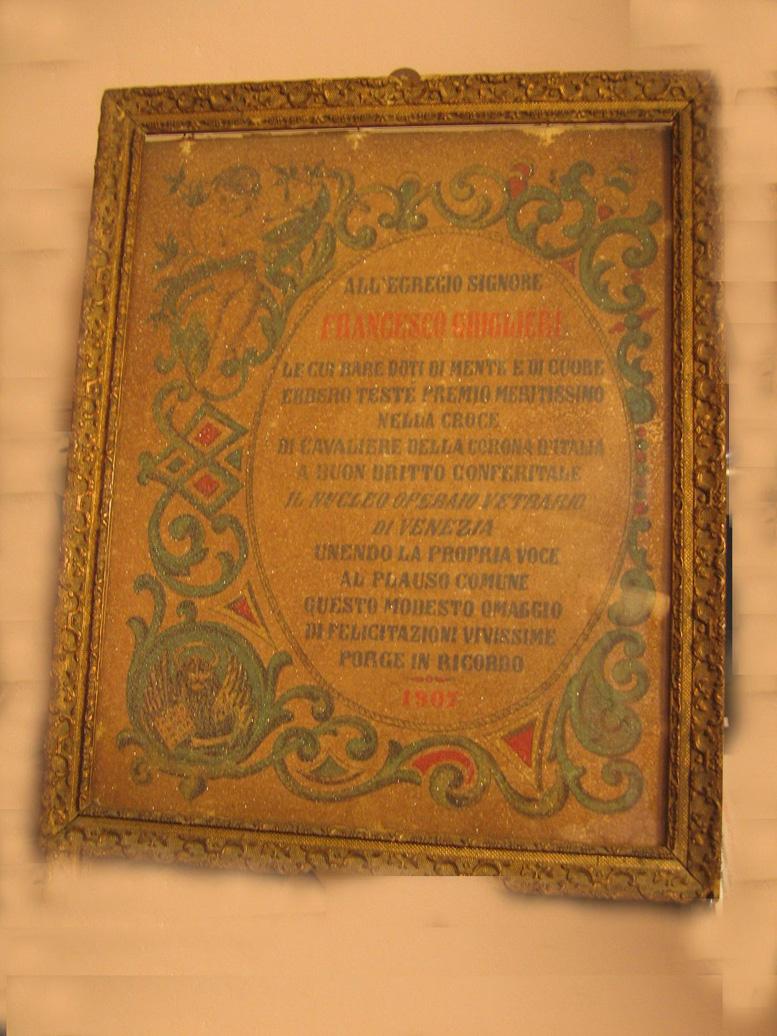 ALL'EGREGIO SIGNORE
FRANCESCO GHIGLIERI
LE CUI RARE DOTI DI MENTE E DI CUORE
EBBERO TESTÉ PREMIO MERITISSIMO
NELLA CROCE
DI CAVALIERE DELLA CORONA D'ITALIA
A BUON DRITTO CONFERITALE
IL NUCLEO OPERAIO VETRARIO
DI VENEZIA
UNENDO LA PROPRIA VOCE
AL PLAUSO COMUNE
QUESTO MODESTO OMAGGIO
DI FELICITAZIONI VIVISSIME
PORGE IN RICORDO
1907